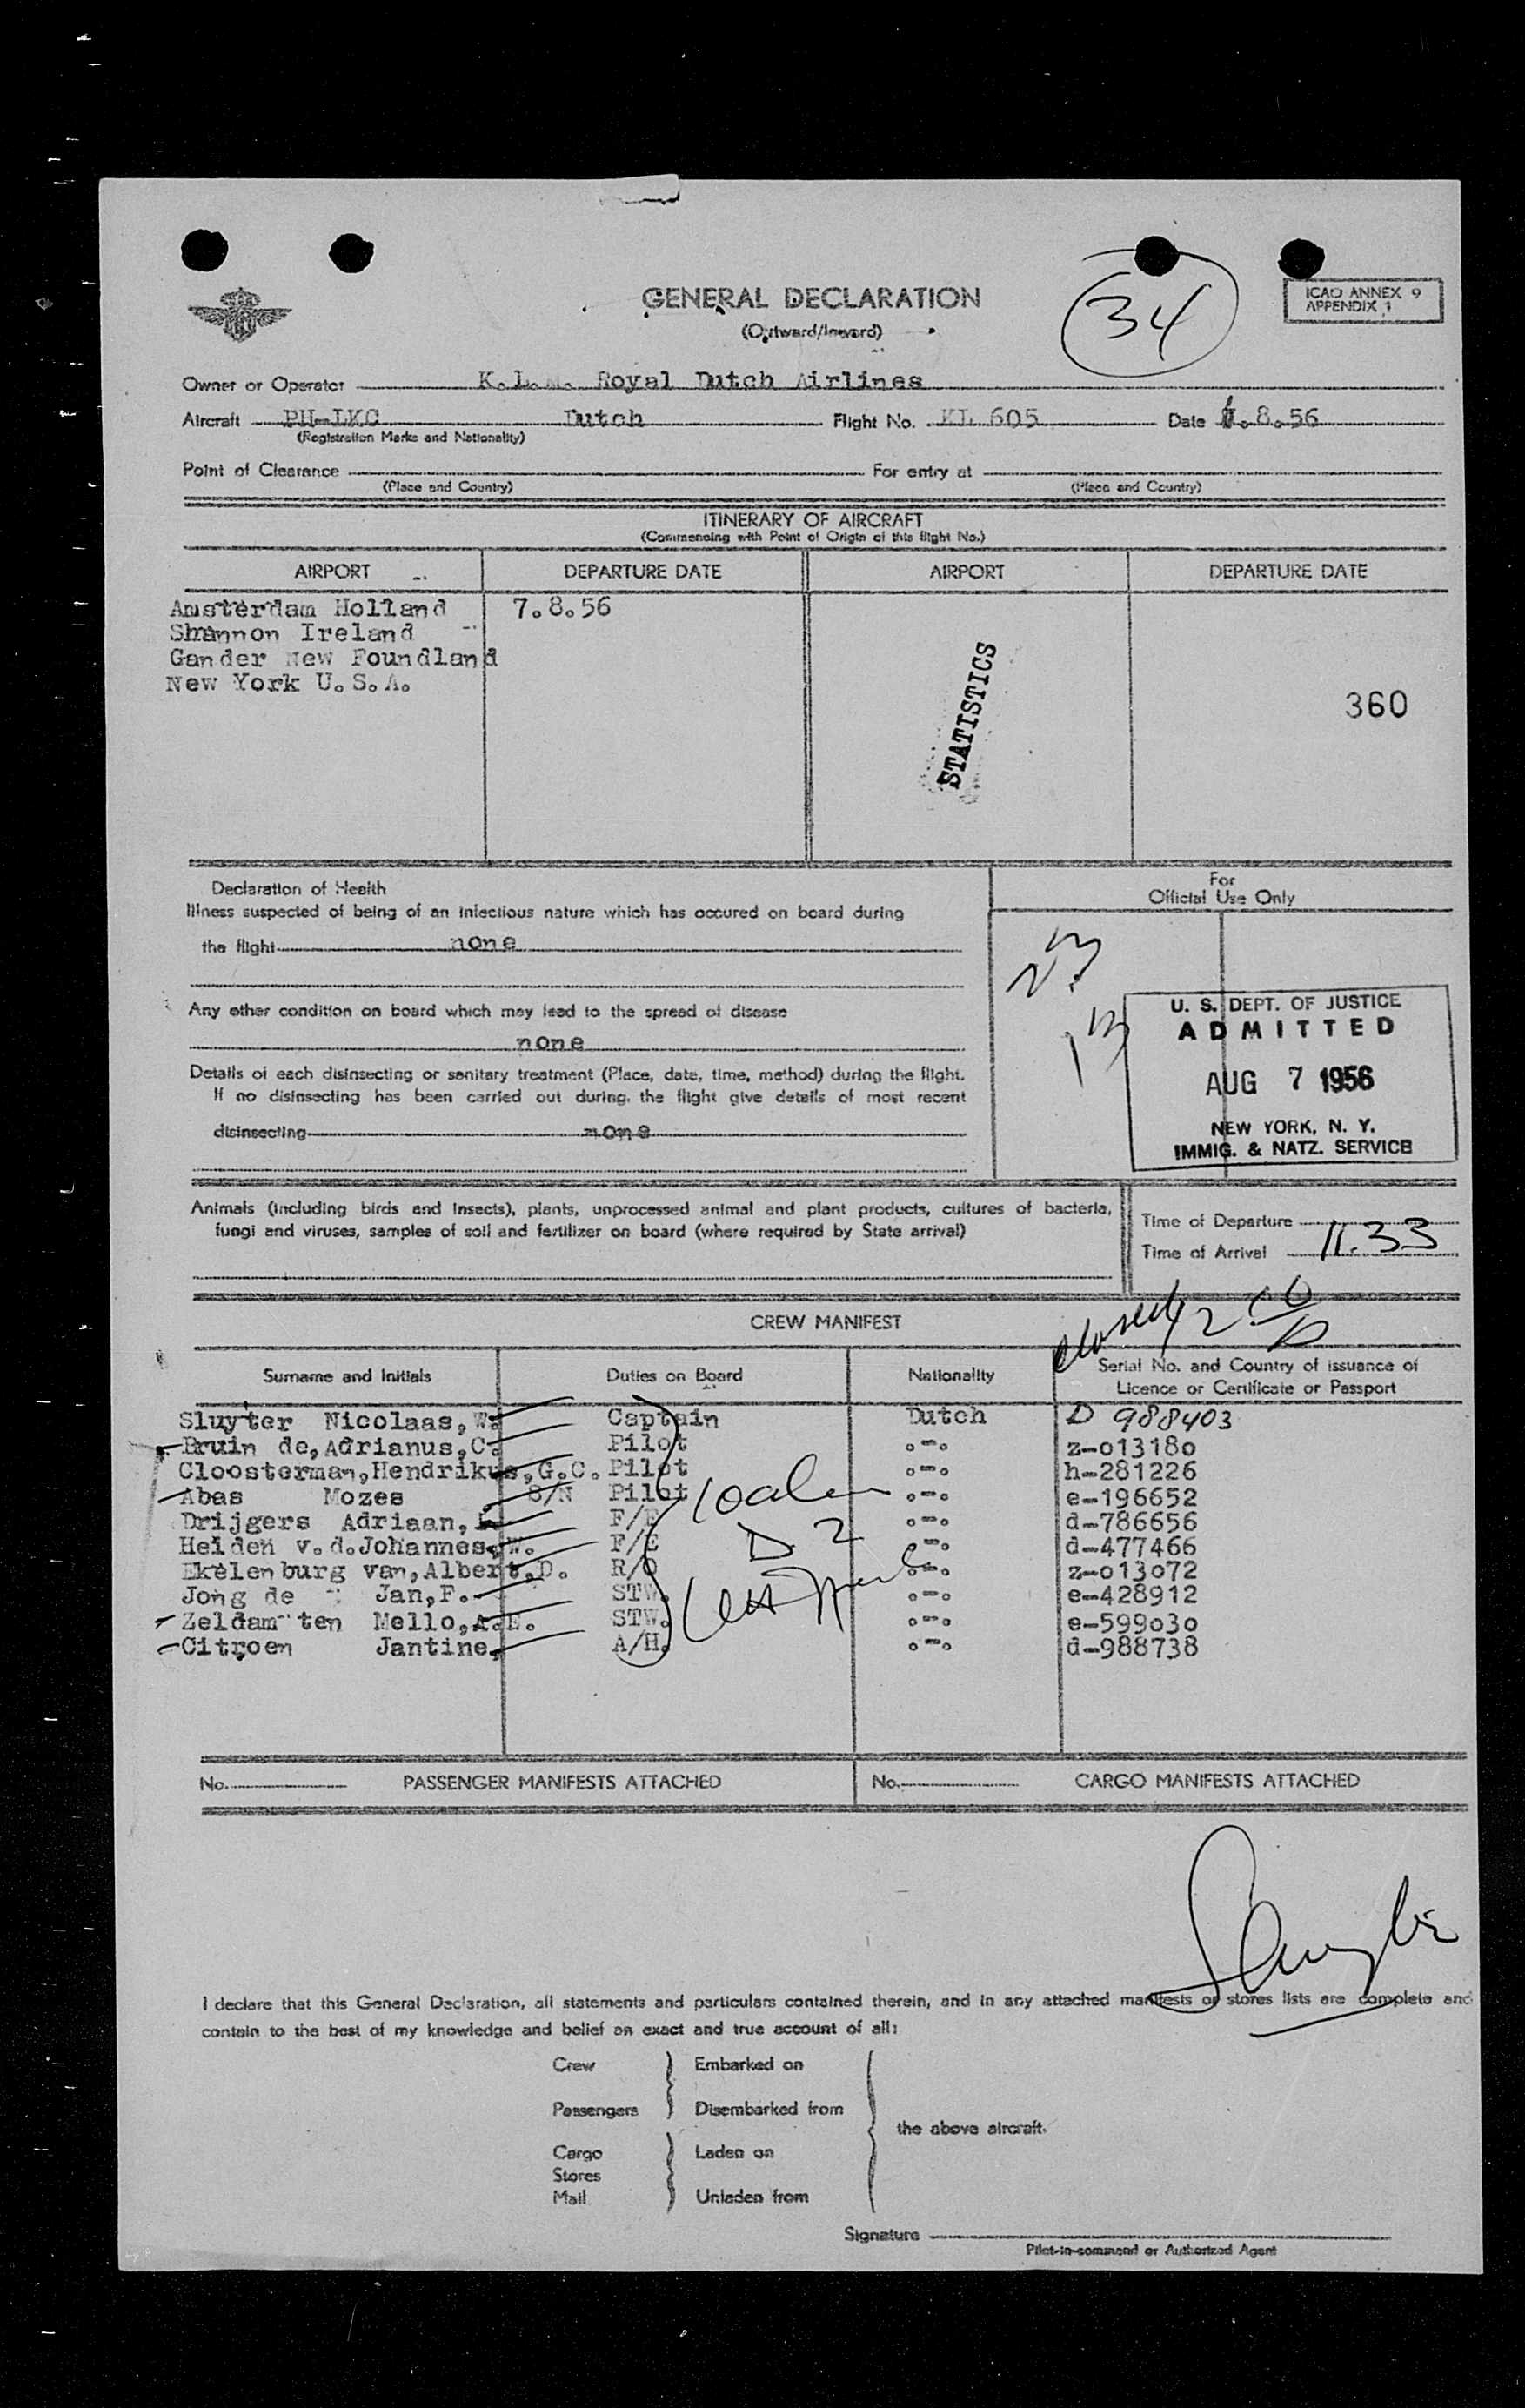 GENERAL DECLARATION
(Outward/Inward)
34
ICAO ANNEX 9
APPENDIX 1
Owner or Operator K.L.M. Royal Dutch Airlines
Aircraft PH-LKC Dutch Flight No. KL 605 Date 7.8.56
(Registration Marks and Nationality)
Point of Clearance For entry at
(Place and Country) (Place and Country)
ITINERARY OF AIRCRAFT
(Commencing with Point of Origin of this flight No.)
AIRPORT DEPARTURE DATE AIRPORT DEPARTURE DATE
Amsterdam Holland 7.8.56
Shannon Ireland
Gander New Foundland
New York U.S.A.
STATISTICS
360
Declaration of Health
Illness suspected of being of an infectious nature which has occured on board during
the flight none
Any other condition on board which may lead to the spread of disease
none
Details of each disinsecting or sanitary treatment (Place, date, time, method) during the flight.
If no disinsecting has been carried out during the flight give details of most recent
disinsecting none
For
Official Use Only
U. S. DEPT. OF JUSTICE
ADMITTED
AUG 7 1956
NEW YORK, N. Y.
IMMIG. & NATZ. SERVICE
Animals (including birds and insects), plants, unprocessed animal and plant products, cultures of bacteria,
fungi and viruses, samples of soil and fertilizer on board (where required by State arrival)
Time of Departure
Time of Arrival 11.33
CREW MANIFEST
Surname and Initials Duties on Board Nationality Serial No. and Country of issuance of
Licence or Certificate or Passport
Sluyter Nicolaas,W. Captain Dutch D 988403
Bruin de,Adrianus,C. Pilot o-o z-013180
Cloosterman,Hendrikus,G.C. Pilot o-o h-281226
Abas Mozes S/N Pilot o-o e-196652
Drijgers Adriaan, F/E o-o d-786656
Helden v.d.Johannes,W. F/E o-o d-477466
Ekelenburg van,Albert,D. R/O o-o z-013072
Jong de Jan,F. STW. o-o e-428912
Zeldam ten Mello,A.E. STW. o-o e-599030
Citroen Jantine, A/H. o-o d-988738
D 2
No. PASSENGER MANIFESTS ATTACHED No. CARGO MANIFESTS ATTACHED
I declare that this General Declaration, all statements and particulars contained therein, and in any attached manifests or stores lists are complete and
contain to the best of my knowledge and belief an exact and true account of all:
Crew Embarked on
Passengers Disembarked from
the above aircraft.
Cargo Laden on
Stores
Mail Unladen from
Signature
Pilot-in-command or Authorized Agent